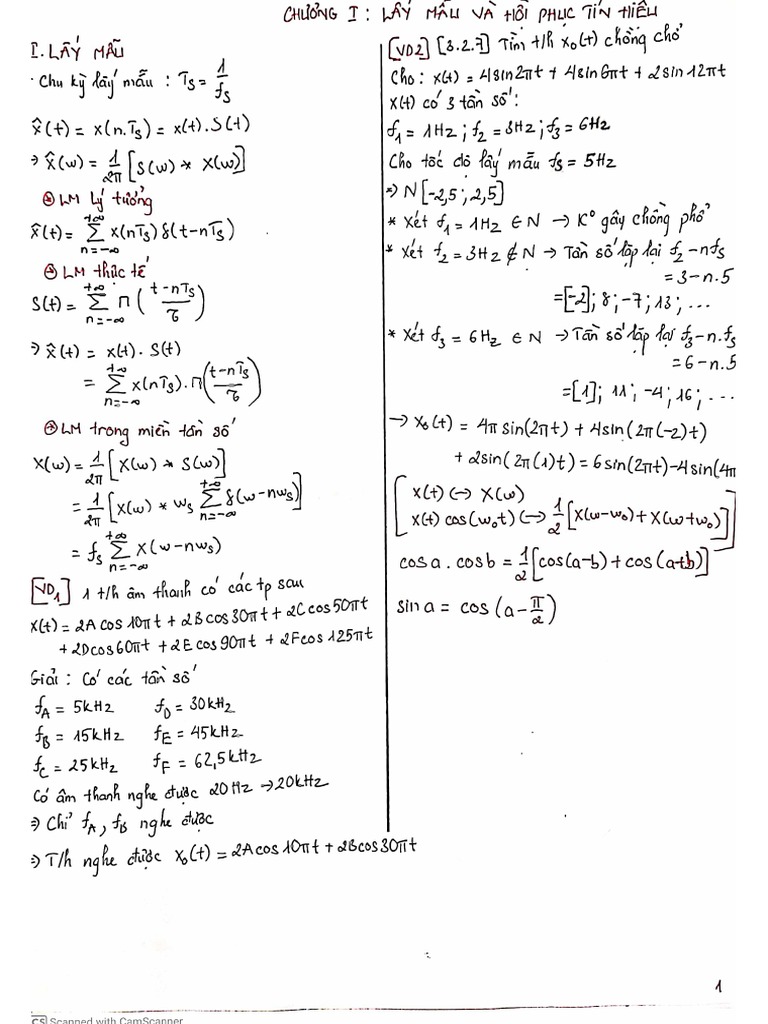 CHƯƠNG I: LẤY MẪU VÀ HỒI PHỤC TÍN HIỆU
I. LẤY MẪU
· Chu kỳ lấy mẫu : Ts = 1/fs
x̂(t) = x(n.Ts) = x(t).S(t)
⇒ X̂(ω) = 1/2π [S(ω) * X(ω)]
⊛ LM lý tưởng
x̂(t) = Σ_{n=-∞}^{+∞} x(nTs) δ(t-nTs)
⊛ LM thức tế
S(t) = Σ_{n=-∞}^{+∞} Π((t-nTs)/τ)
⇒ x̂(t) = x(t). S(t)
= Σ_{n=-∞}^{+∞} x(nTs).Π((t-nTs)/τ)
⊛ LM trong miền tần số
X(ω) = 1/2π [X(ω) * S(ω)]
= 1/2π [X(ω) * ωs Σ_{n=-∞}^{+∞} δ(ω-nωs)]
= fs Σ_{n=-∞}^{+∞} X(ω-nωs)
[VD1] 1 t/h âm thanh có các tp sau
x(t) = 2A cos 10πt + 2B cos 30πt + 2C cos 50πt
+ 2D cos 60πt + 2E cos 90πt + 2F cos 125πt
Giải : Có các tần số
fA = 5kHz fD = 30kHz
fB = 15kHz fE = 45kHz
fC = 25kHz fF = 62,5kHz
Có âm thanh nghe được 20Hz → 20kHz
⇒ Chỉ fA, fB nghe được
⇒ T/h nghe được x₀(t) = 2A cos 10πt + 2B cos 30πt
[VD2] [3.2.7] Tìm t/h x₀(t) chồng chở
Cho: x(t) = 4sin2πt + 4sin6πt + 2sin12πt
x(t) có 3 tần số :
f1 = 1Hz ; f2 = 3Hz ; f3 = 6Hz
Cho tốc độ lấy mẫu fs = 5Hz
⇒ N[-2,5 ; 2,5]
* Xét f1 = 1Hz ∈ N → K° gây chồng phổ
* Xét f2 = 3Hz ∉ N → Tần số lặp lại f2 - nfs
= 3 - n.5
= [-2] ; 8 ; -7 ; 13 ; ...
* Xét f3 = 6Hz ∈ N → Tần số lặp lại f3 - n.fs
= 6 - n.5
= [1] ; 11 ; -4 ; 16 ; ...
→ x₀(t) = 4π sin(2πt) + 4sin(2π(-2)t)
+ 2sin(2π(1)t) = 6sin(2πt) - 4sin(4π
[x(t) ↔ X(ω)
x(t) cos(ω₀t) ↔ 1/2 [X(ω-ω₀) + X(ω+ω₀)]]
cos a . cos b = 1/2 [cos(a-b) + cos(a+b)]
sin a = cos (a - π/2)
1
CS Scanned with CamScanner